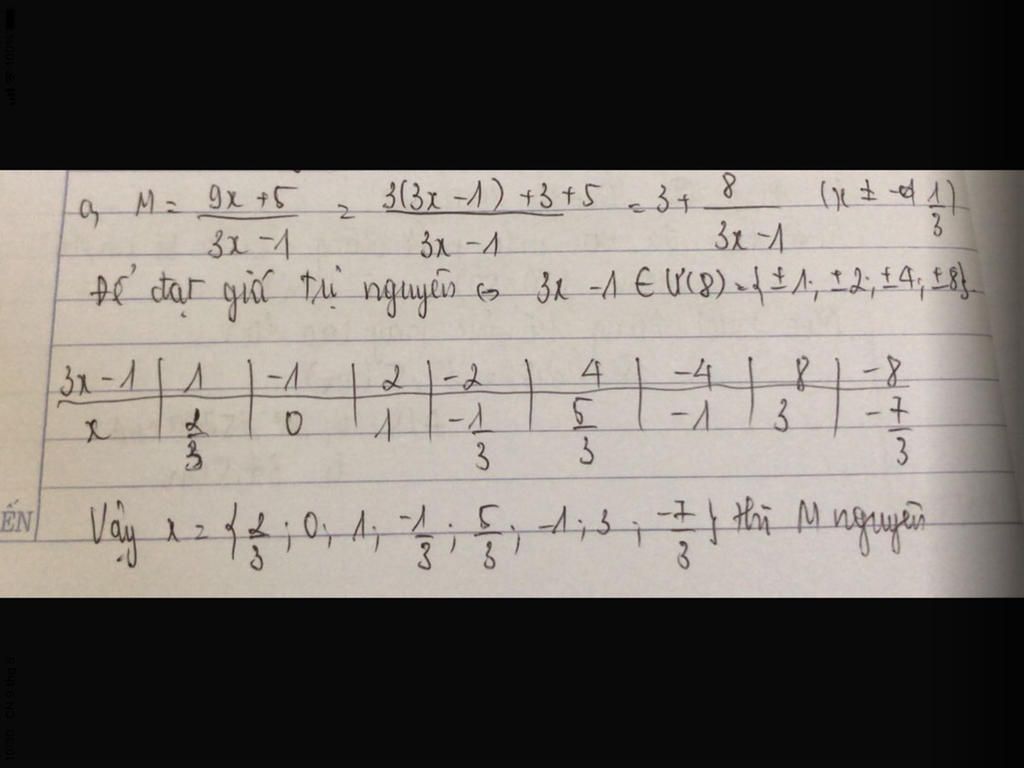 a, M = (9x + 5)/(3x - 1) = (3(3x - 1) + 3 + 5)/(3x - 1) = 3 + 8/(3x - 1) (x ± 1/3)
Để đạt giá trị nguyên ⇔ 3x - 1 ∈ Ư(8) = {± 1; ± 2; ± 4; ± 8}
3x - 1 | 1 | -1 | 2 | -2 | 4 | -4 | 8 | -8
x | 2/3 | 0 | 1 | -1/3 | 5/3 | -1 | 3 | -7/3
ẾN
Vậy x = {2/3; 0; 1; -1/3; 5/3; -1; 3; -7/3} thì M nguyên